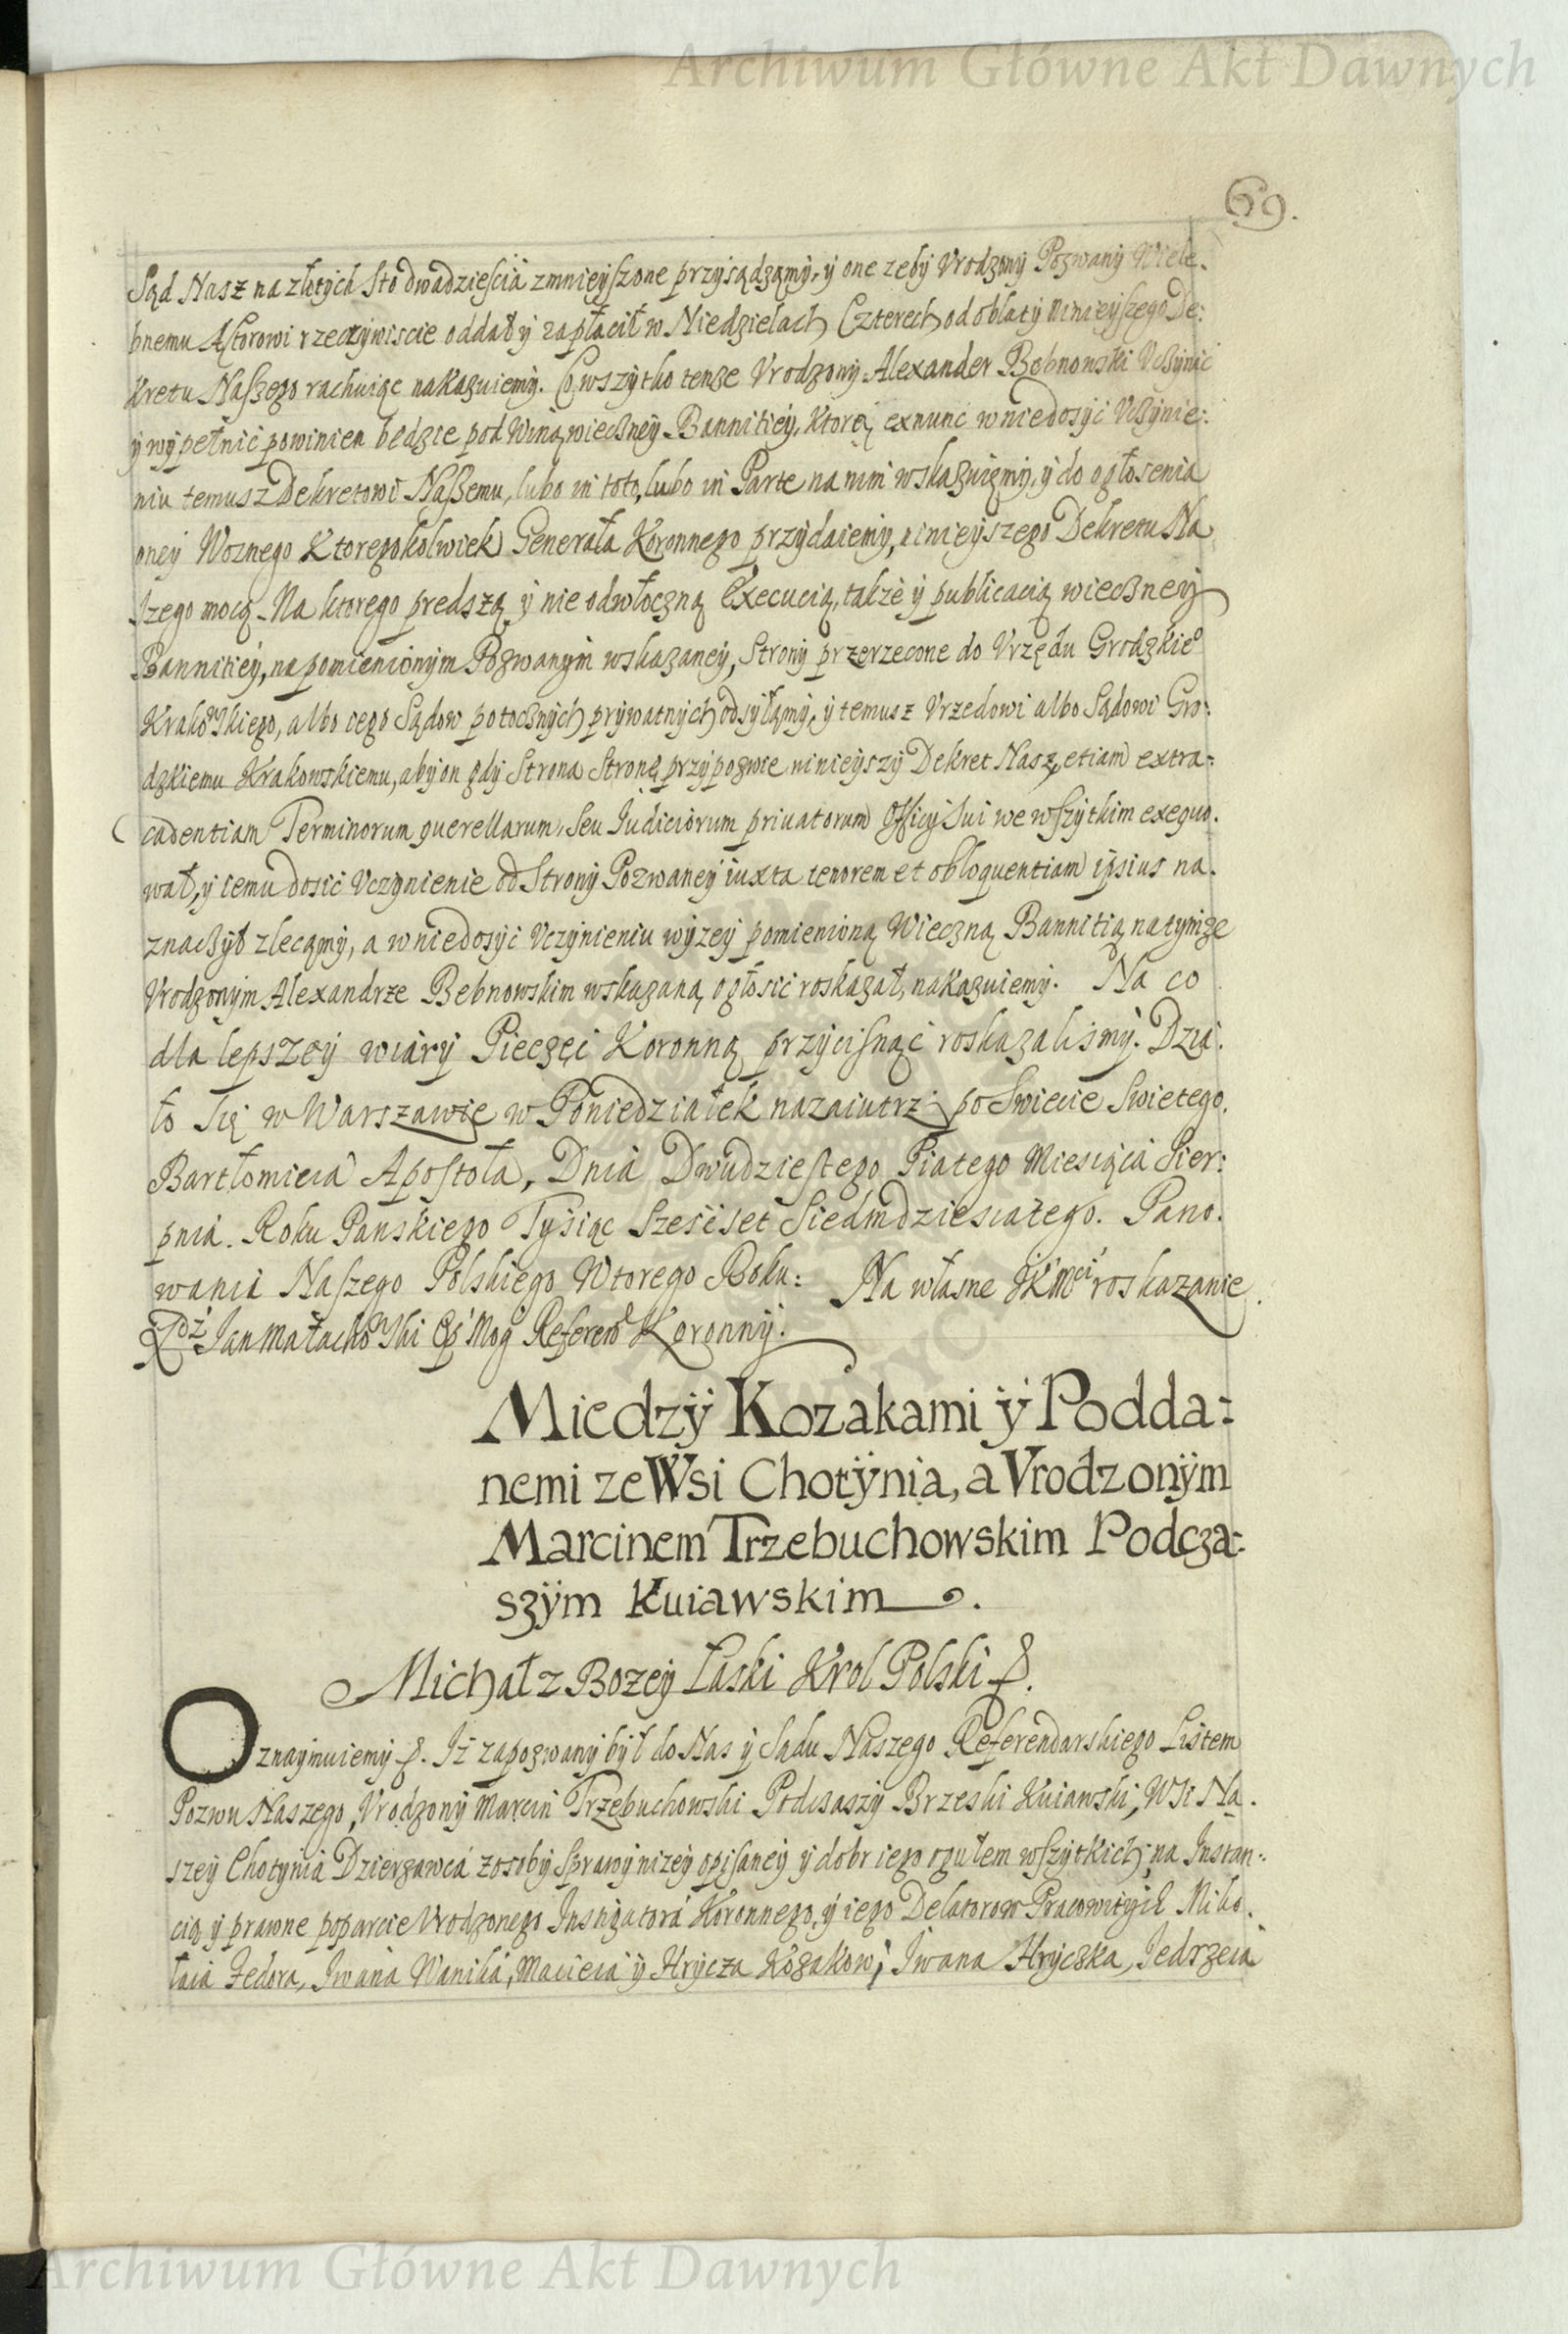 Archiwum Główne Akt Dawnych
69.
Sąd Nasz na złotych sto dwadzieścia zmnieyszone przysądzamy, y one zeby Vrodzony Pozwany Wiele-
bnemu Actorowi rzeczywiscie oddał y zapłacił w Niedzielach Czterech od oblaty ninieyszego De:
kretu Naszego rachuiąc nakazuiemy. Co wszytko tenze Vrodzony Alexander Bebnowski Vczynić
y wypełnić powinien będzie pod Winą wieczney Bannitiey, ktorą exnunc w niedosyć Vczynie:
niu temusz Dekretowi Naszemu, lubo in toto, lubo in Parte na nim wskazuiemy, y do ogłosenia
oney Woznego Ktoregokolwiek Generała Koronnego przydaiemy, ninieyszego Dekretu Na
szego mocą. Na ktorego predszą y nie odwłoczną Execucią, takze y publicacią wieczney
Bannitiey, na pomienionym Pozwanym wskazaney, Strony przerzeczone do Vrzędu Grodzkieo
Krakowskiego, albo iego Sądow potocznych prywatnych odsyłamy, y temusz Vrzedowi albo Sądowi Gro:
dzkiemu Krakowskiemu, aby on gdy Strona Stronę przypozwie ninieyszy Dekret Nasz, etiam extra:
cadentiam Terminorum querellarum, seu Iudiciorum priuatorum Officij Sui we wszytkim exequo.
wał, y iemu dosić Vczynienie od Strony Pozwaney iuxta tenorem et obloquentiam ipsius na.
znaczył zlecamy, a w niedosyć Vczynieniu wyzey pomienioną Wieczną Bannitią na tymze
Vrodzonym Alexandrze Bebnowskim wskazaną ogłosić roskazał, nakazuiemy. Na co
dla lepszey wiary Pieczęć Koronną przycisnąć roskazalismy. Dzia.
ło się w Warszawie w Poniedziałek nazaiutrz po Swiecie Swietego.
Bartłomieia Apostoła, Dnia Dwudziestego Piatego Miesiąca Sier:
pnia. Roku Panskiego Tysiąc Szescset Siedmdziesiatego. Pano.
wania Naszego Polskiego Wtorego Roku: Na własne JKMci roskazanie.
Jan Małachowski Referend Koronny.
Miedzy Kozakami y Podda:
nemi ze Wsi Chotynia, a Vrodzonym
Marcinem Trzebuchowskim Podcza:
szym Kuiawskim.
Michał z Bozey Łaski Krol Polski &.
Oznaymuiemy &. Iż zapozwany był do Nas y Sądu Naszego Referendarskiego Listem
Pozwu Naszego, Vrodzony Marcin Trzebuchowski Podczaszy Brzeski Kuiawski, Wsi Na.
szey Chotynia Dzierzawca z osoby sprawy nizey opisaney y dobr iego ogułem wszytkich, na Instan:
cią y prawne poparcie Vrodzonego Instigatora Koronnego, y iego Delatorow Pracowitych Miko.
łaia Fedora, Iwana Wanika, Macieia y Hrycza Kozakow, Iwana Hryczka, Iedrzeia
Archiwum Główne Akt Dawnych